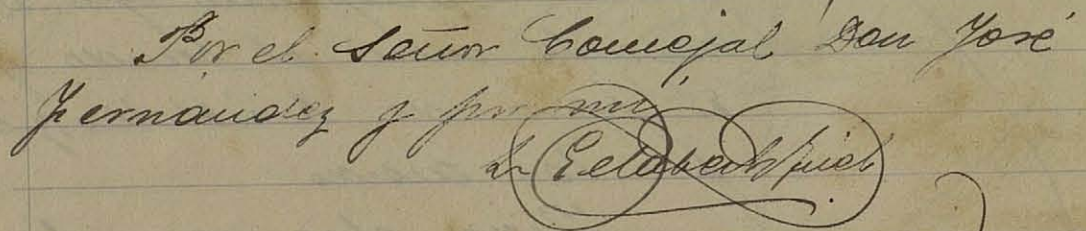 Por el Señor Concejal Don José
Fernández y por mí